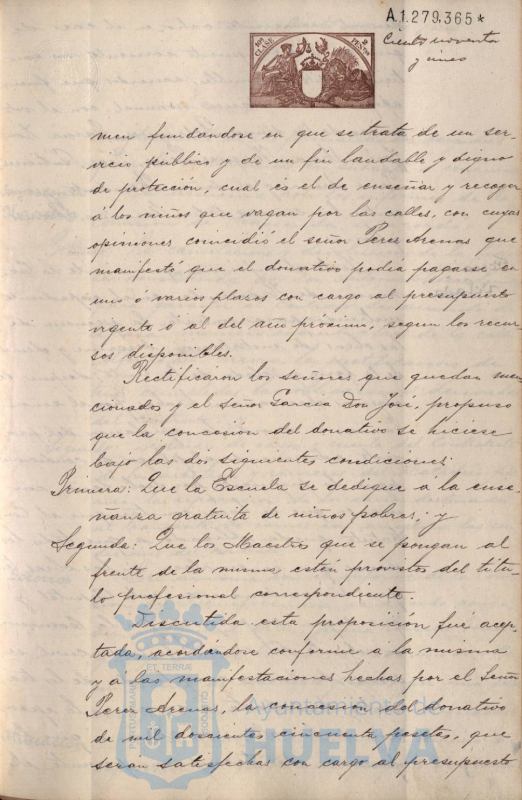 A.1.279.365*
Ciento noventa
y cinco
10ª CLASE
2 PESETAS
men fundándose en que se trata de un ser-
vicio público y de un fin laudable y digno
de protección, cual és el de enseñar y recoger
á los niños que vagan por las calles, con cuyas
opiniones coincidió el señor Perez Arenas que
manifestó que el donativo podia pagarse en
uno ó varios plazos con cargo al presupuesto
vigente ó al del año próximo, segun los recur-
sos disponibles.
Rectificaron los señores que quedan men-
cionados y el señor Garcia Don José, propuso
que la concesión del donativo se hiciese
bajo las dos siguientes condiciones:
Primera: Que la Escuela se dedique á la ense-
ñanza gratuita de niños pobres; y
Segunda: Que los Maestros que se pongan al
frente de la misma estén provistos del títu-
lo profesional correspondiente.
Discutida esta proposición fué acep-
tada, acordándose conforme á la misma
y á las manifestaciones hechas por el Señor
Perez Arenas, la concesion del donativo
de mil doscientas cincuenta pesetas, que
serán satisfechas con cargo al presupuesto
ET TERRÆ
PORTUS MARIS
CUSTODIT
Ayuntamiento de
HUELVA